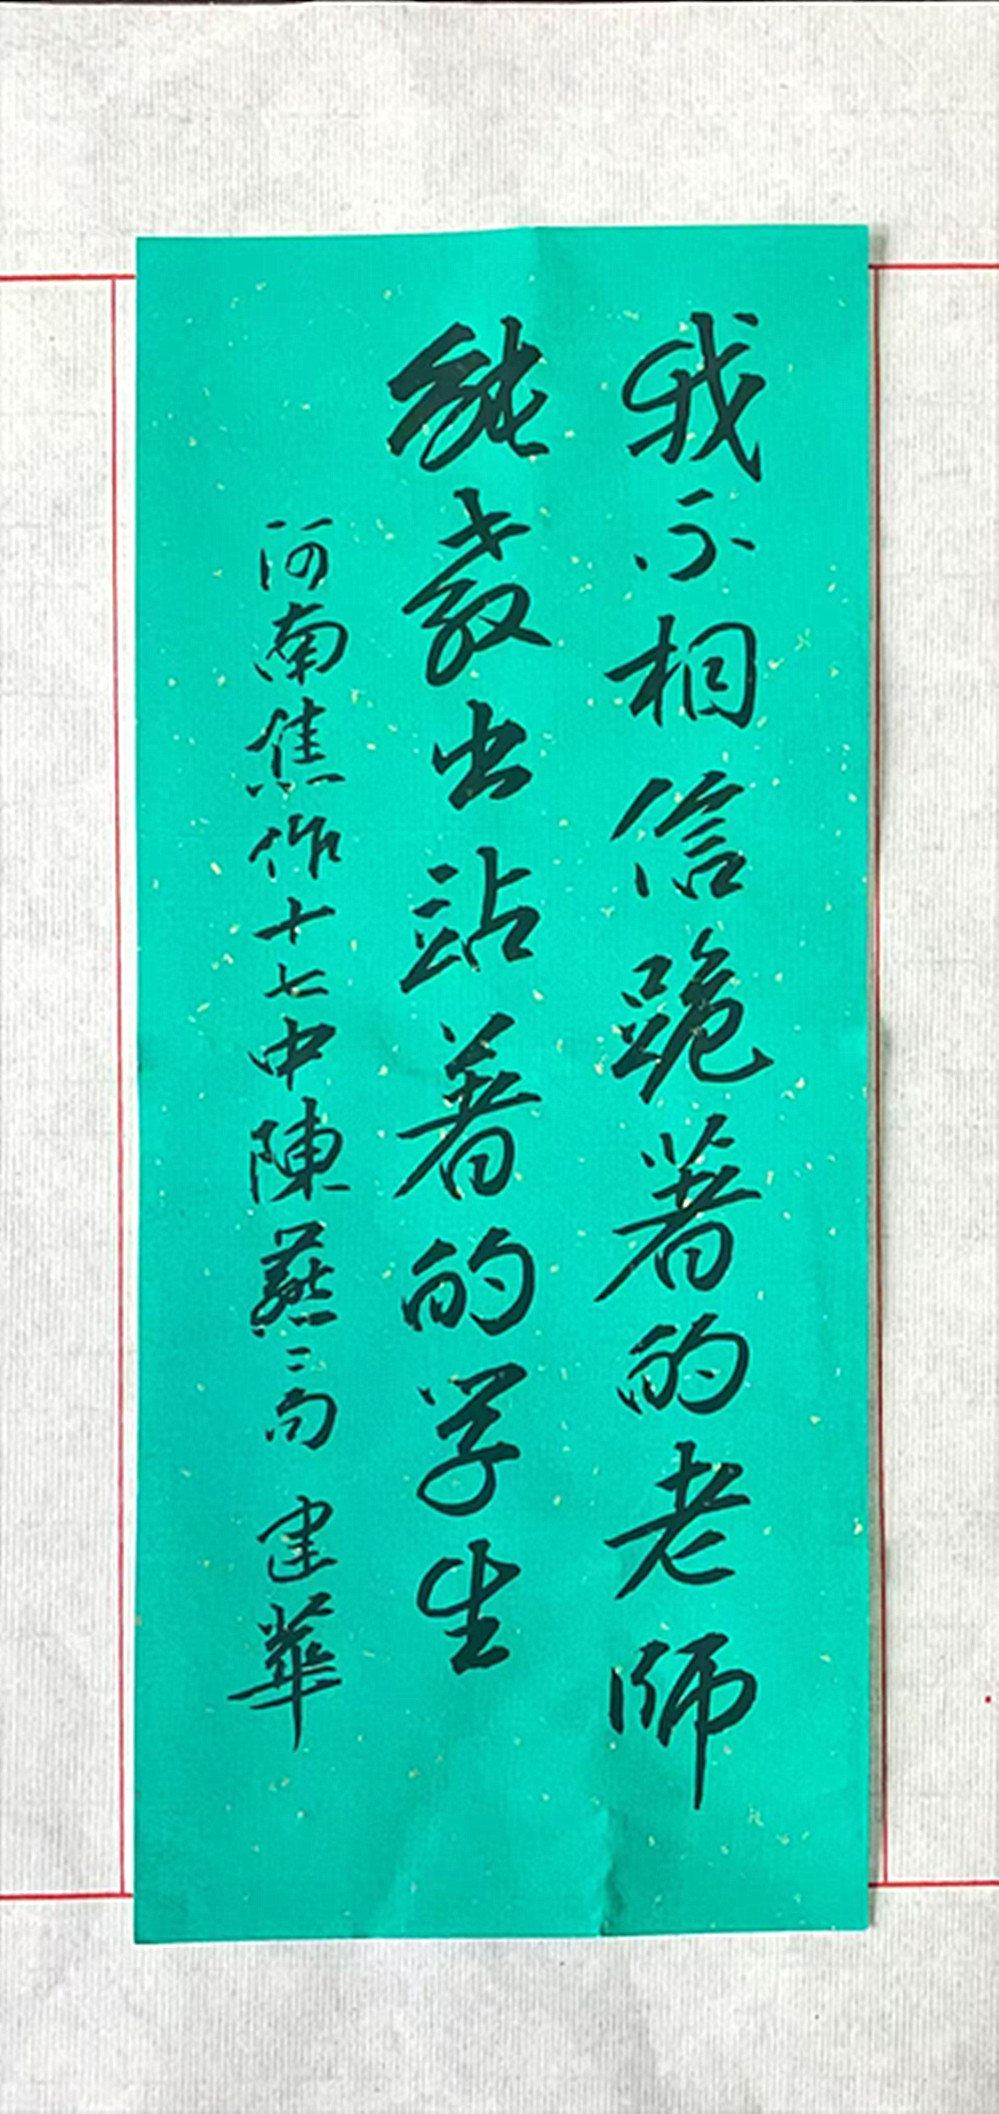 我不相信跪著的老师
能教出站著的学生
河南焦作十七中陳燕二句 建華